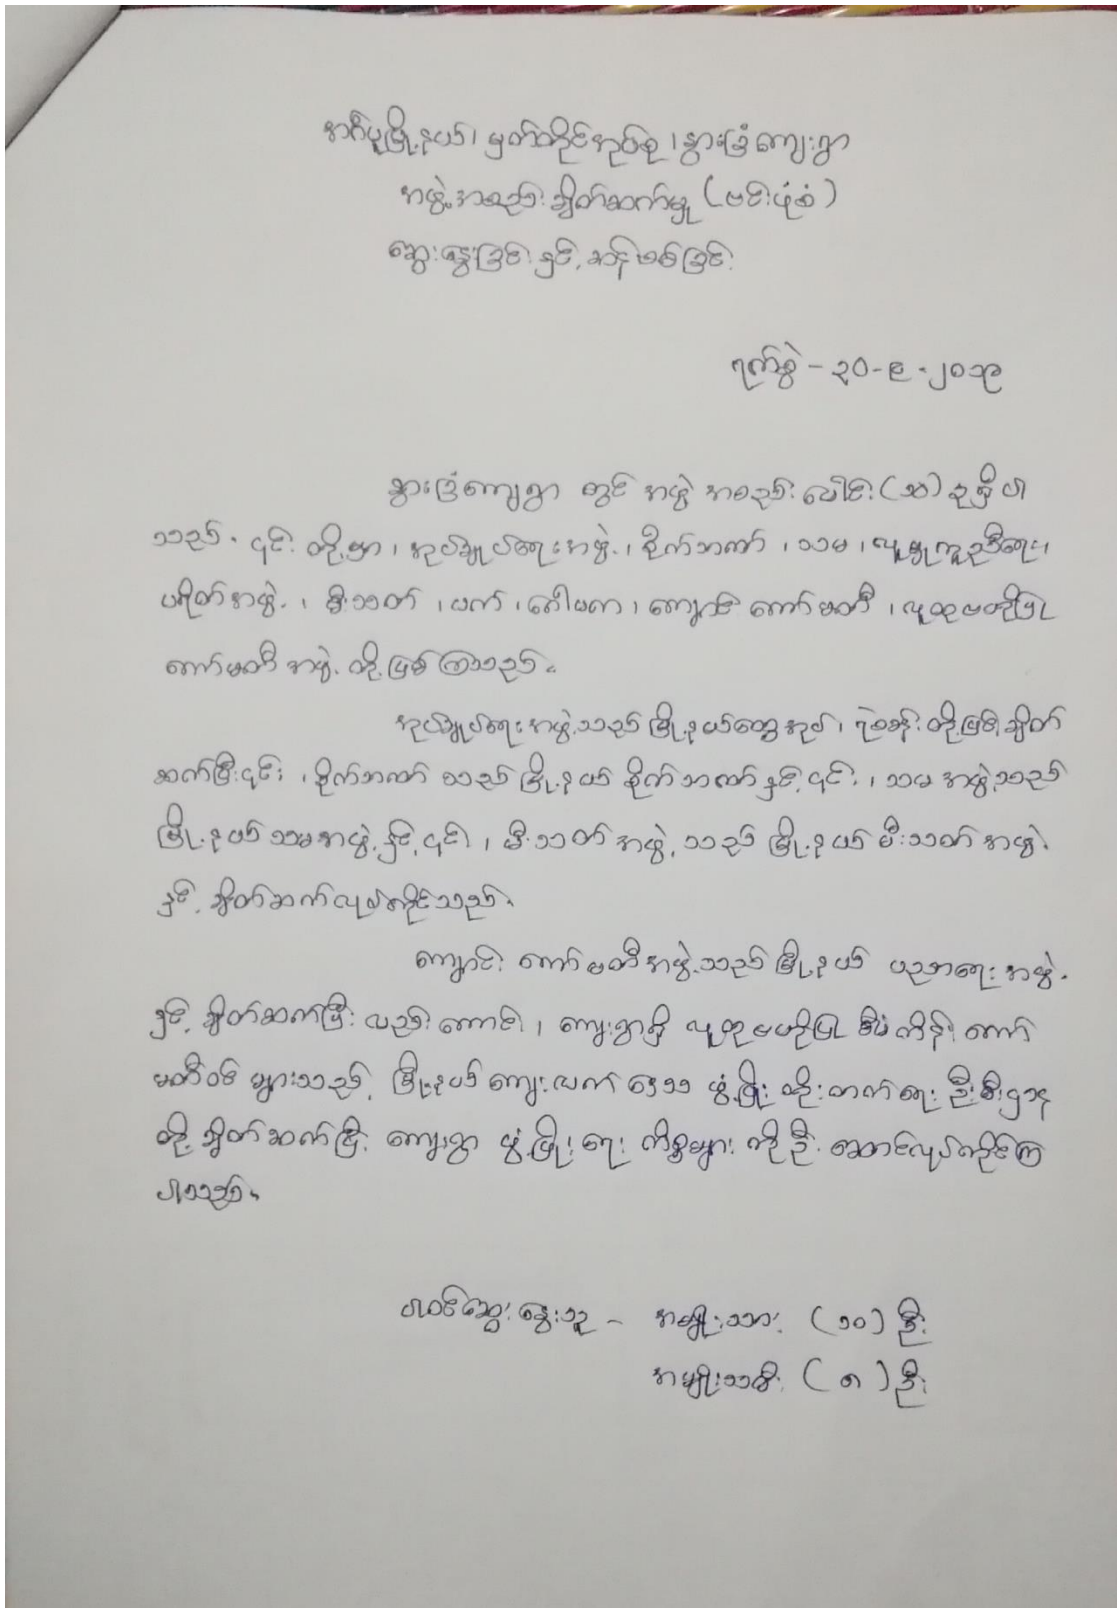 အင်္ဂပူမြို့နယ်၊ မှတ်တိုင်အုပ်စု၊ နွားခြံကျေးရွာ
အဖွဲ့အစည်း ချိတ်ဆက်မှု (ဗင်းပုံစံ)
ဆွေးနွေးခြင်း နှင့် ဆန်းစစ်ခြင်း
ရက်စွဲ – ၃၀-၉-၂၀၁၉
နွားခြံကျေးရွာ တွင် အဖွဲ့ အစည်း ပေါင်း (၁၀) ခုရှိ ပါ
သည်။ ၎င်း တို့မှာ၊ အုပ်ချုပ်ရေးအဖွဲ့၊ စိုက်ဘဏ်၊ သမ၊ လူမှုကူညီရေး၊
ပရိတ်အဖွဲ့၊ မီးသတ်၊ ပက်၊ ဂေါပက၊ ကျောင်း ကော်မတီ၊ လူထုဗဟိုပြု
ကော်မတီ အဖွဲ့ တို့ ဖြစ်ကြသည်။
အုပ်ချုပ်ရေး အဖွဲ့သည် မြို့နယ်ထွေအုပ်၊ ရဲစခန်း တို့ဖြင့် ချိတ်
ဆက်ပြီး၎င်း၊ စိုက်ဘဏ် သည် မြို့နယ် စိုက်ဘဏ်နှင့်၎င်း၊ သမ အဖွဲ့သည်
မြို့နယ် သမအဖွဲ့နှင့်၎င်း၊ မီးသတ်အဖွဲ့ သည် မြို့နယ် မီးသတ် အဖွဲ့
နှင့် ချိတ်ဆက်လုပ်ကိုင်သည်။
ကျောင်း ကော်မတီအဖွဲ့သည် မြို့နယ် ပညာရေး အဖွဲ့
နှင့် ချိတ်ဆက်ပြီး လည်းကောင်း၊ ကျေးရွာရှိ လူထုဗဟိုပြု စီမံကိန်း ကော်
မတီဝင် များသည် မြို့နယ် ကျေးလက် ဒေသ ဖွံ့ဖြိုး တိုးတက်ရေး ဦးစီးဌာန
တို့ ချိတ်ဆက်ပြီး ကျေးရွာ ဖွံ့ဖြိုးရေး ကိစ္စများ ကို ဦး ဆောင်လုပ်ကိုင်ကြ
ပါသည်။
ပါဝင်ဆွေးနွေးသူ – အမျိုးသား (၁၀) ဦး
အမျိုးသမီး (၈) ဦး